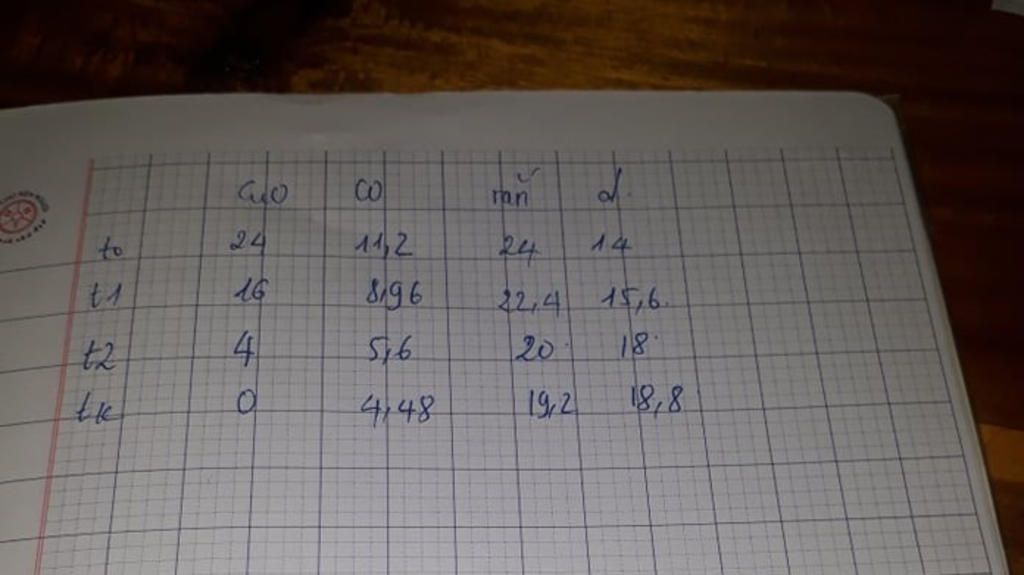 CuO CO rắn d.
t0 24 11,2 24 14
t1 16 8,96 22,4 15,6.
t2 4 5,6 20 18
tk 0 4,48 19,2 18,8